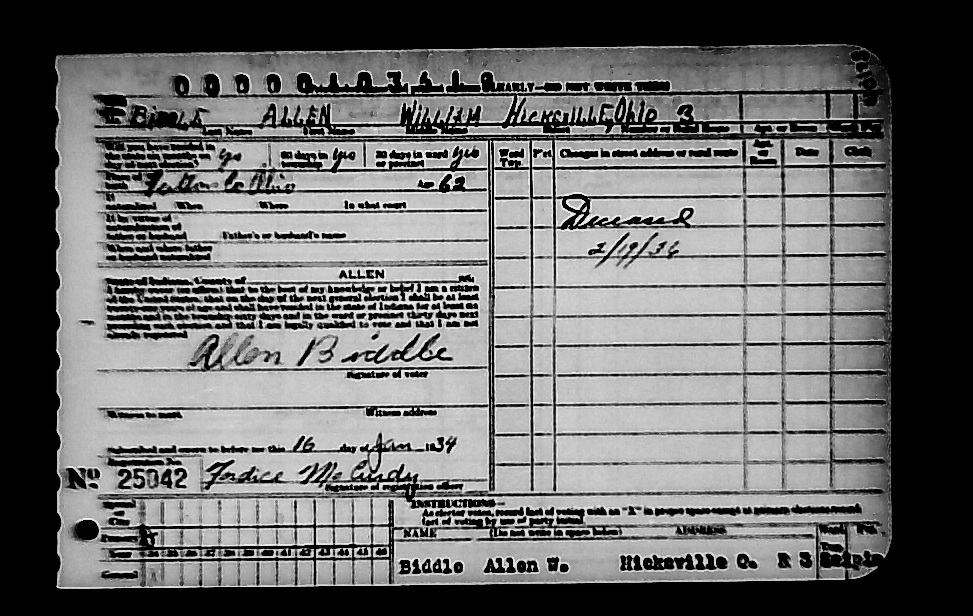 0 0 0 0 0 1 0 3 4 1 9 CLEARLY—DO NOT WRITE THESE
BIDDLE ALLEN WILLIAM HICKSVILLE, OHIO 3
Last Name First Name Middle Name Street Number or Rural Route Apt. or Room
Will you have resided in yes 60 days in township yes 30 days in ward or precinct yes Ward Twp. P'ct Changes in street address or rural route Apt. or Room Date Clerk
Place of birth Fulton Co Ohio Age 62
If naturalized When Where In what court
Deceased
If by virtue of naturalization of father or husband Father's or husband's name
2/19/36
When and where father or husband naturalized
State of Indiana, County of ALLEN ss:
I hereby swear (or affirm) that to the best of my knowledge or belief I am a citizen
of the United States, that on the day of the next general election I shall be at least
years of age and shall have resided in the state of Indiana for at least six
months and in the township sixty days and in the ward or precinct thirty days next
preceding such election and that I am legally qualified to vote and that I am not
already registered
Allen Biddle
Signature of voter
Witness to mark Witness address
Subscribed and sworn to before me this 16 day of Jan 1934
Registration No.
No 25042 Fordice McCurdy
Signature of registration officer
INSTRUCTIONS—
As elector votes, record fact of voting with an "X" in proper space except at primary elections record
fact of voting by use of party initial.
City
Primary
NAME (Do not write in space below) ADDRESS Ward Pct.
Year 34 35 36 37 38 39 40 41 42 43 44 45 46 Twp.
General
Biddle Allen W. Hicksville O. R 3 Scipio